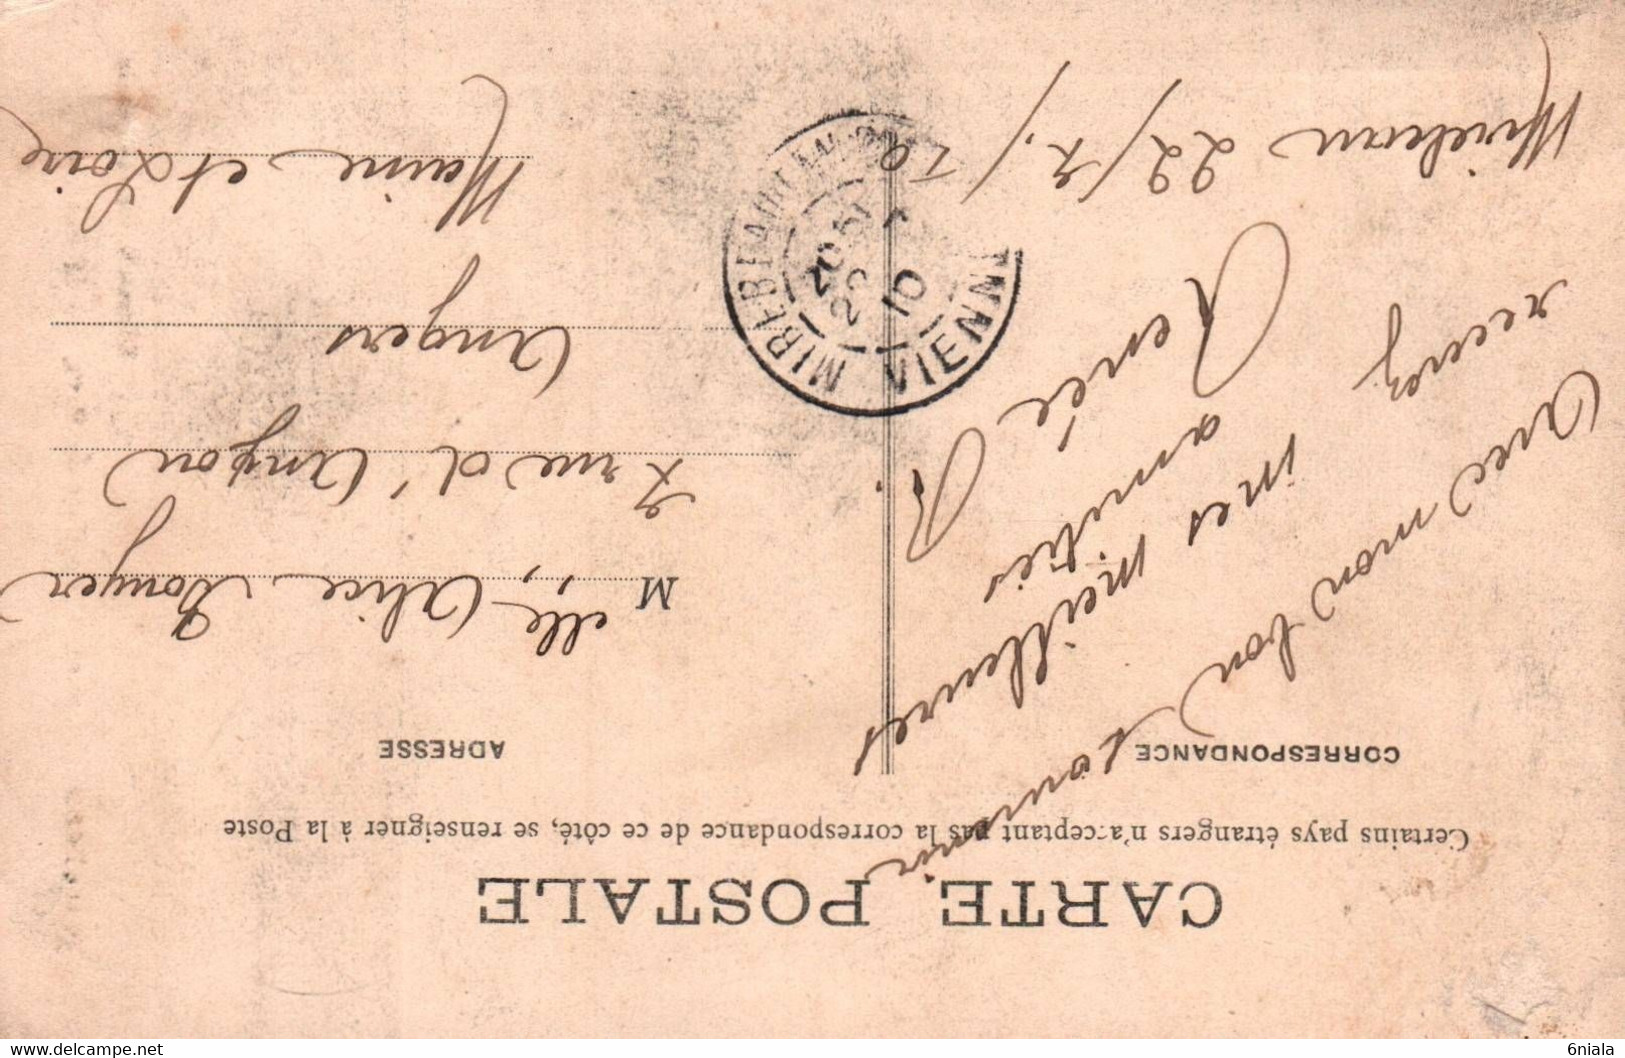 CARTE POSTALE
Certains pays étrangers n'acceptant pas la correspondance de ce côté, se renseigner à la Poste
CORRESPONDANCE
ADRESSE
Avec mon bon souvenir
recevez
mes meilleures
amitiés
Renée R.
Mirebeau 22/7/10
Melle Alice Bouyer
7 rue d'Anjou
Angers
Maine et Loire
MIREBEAU
VIENNE
22
10
delcampe.net
6niala